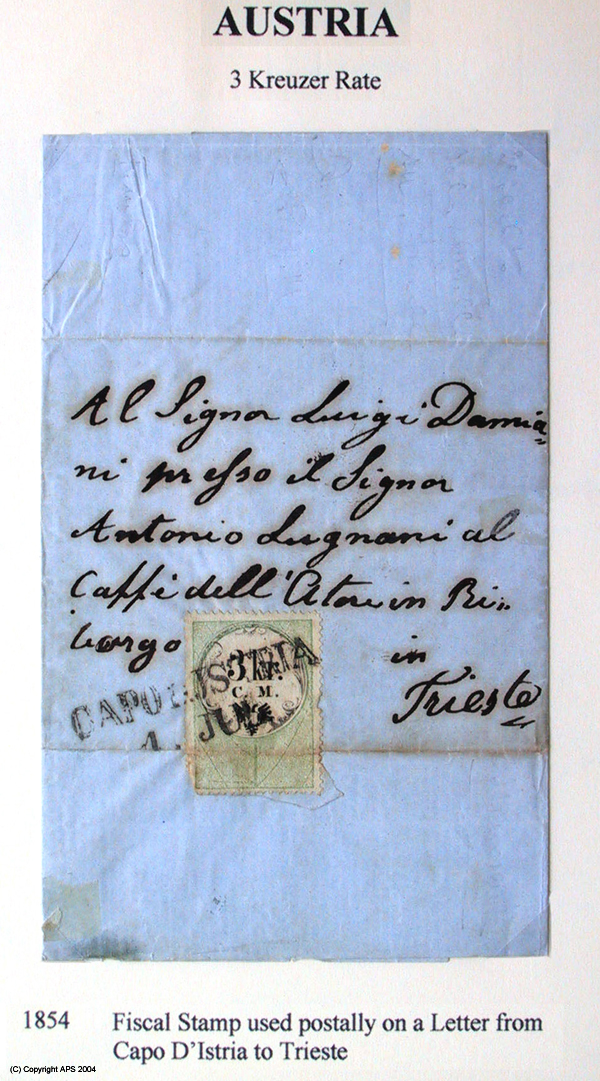 AUSTRIA
3 Kreuzer Rate
Al Signor Luigi Damia=
ni presso il Signor
Antonio Lugnani al
Caffè dell'Atore in Ri„
borgo
in
Trieste
3 Kr.
C. M.
CAPO D'ISTRIA
1. JUN
1854 Fiscal Stamp used postally on a Letter from
Capo D'Istria to Trieste
(C) Copyright APS 2004